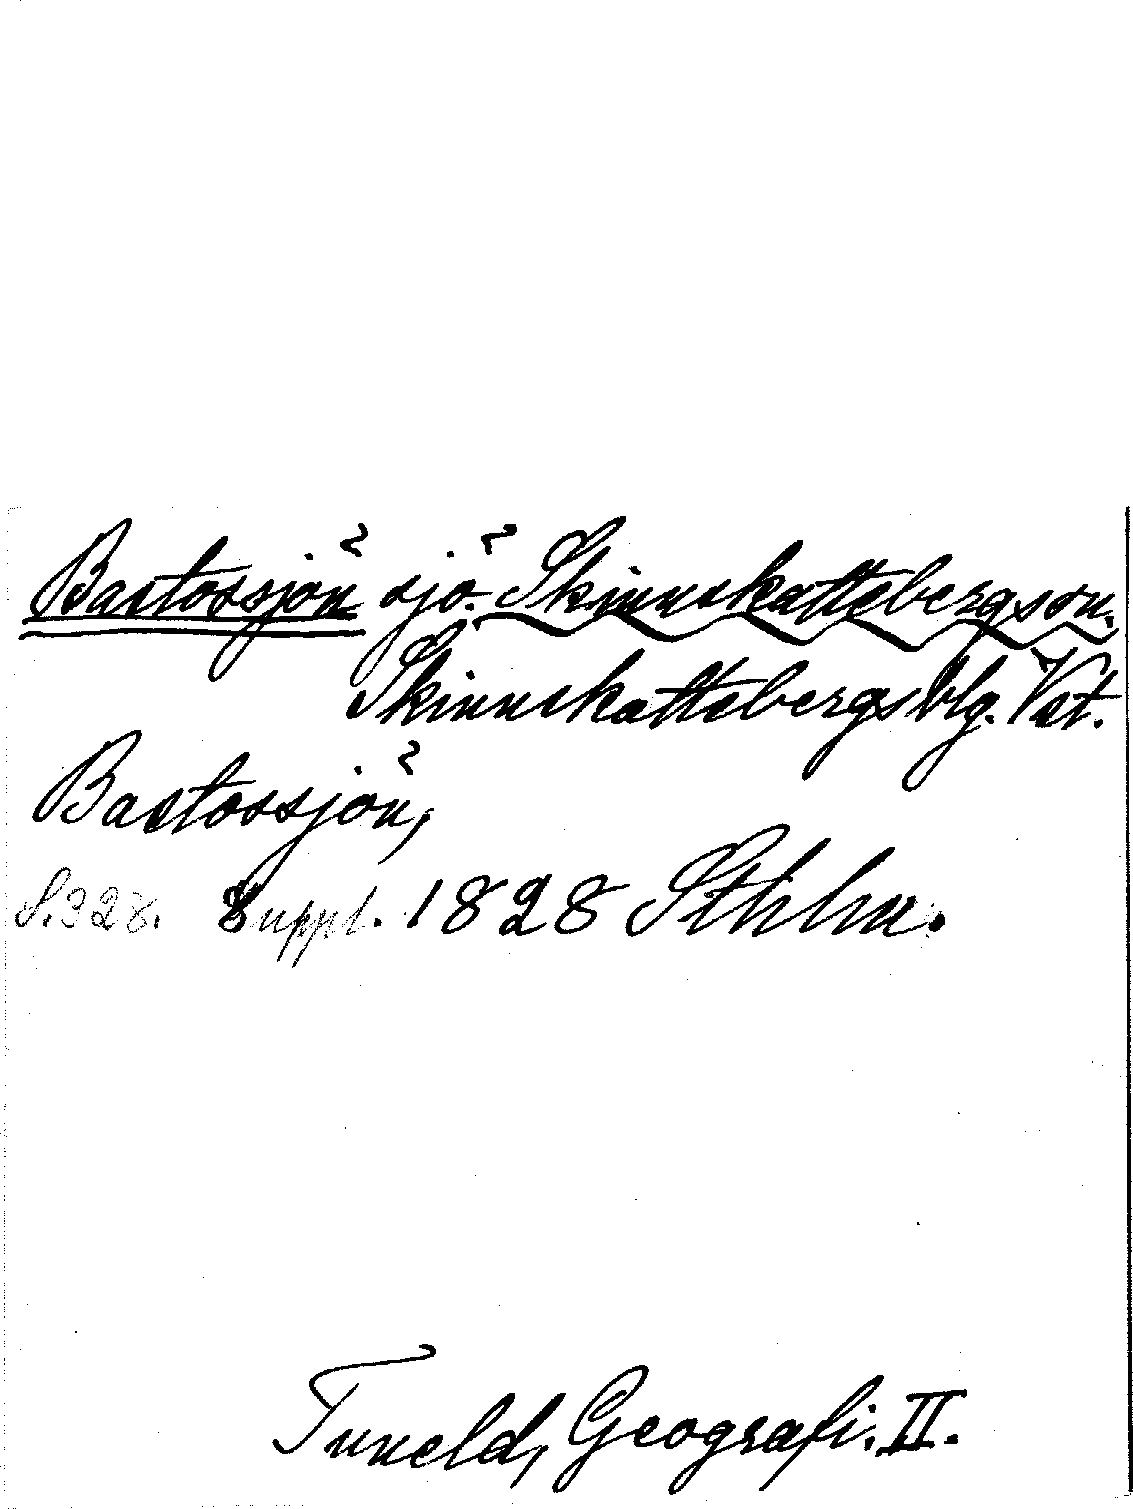 Bastossjön sjö. Skinnskattebergs sn.
Skinnskattebergs blg. Vst.
Bastossjön,
S. 328. Suppl. 1828 Sthlm.
Tuneld, Geografi. II.